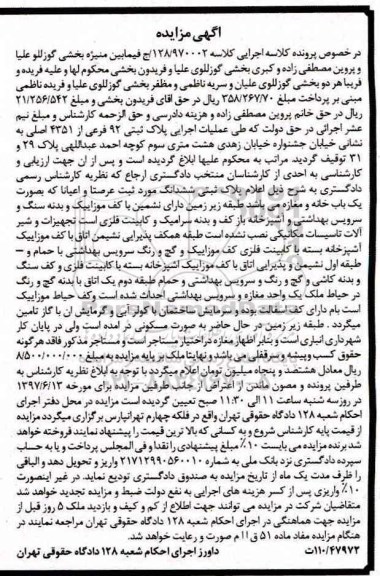 آگهی مزایده
در خصوص پرونده کلاسه اجرایی کلاسه ۱۲۸/۹۷۰۰۰۲/ج فیمابین منیژه بخشی گوزللو علیا
و پروین مصطفی زاده و کبری بخشی گوزللوی علیا و فریدون بخشی محکوم لها و علیه فریده و
فریبا هر دو بخشی گوزللوی علیان و سریه ناظمی و مظفر بخشی گوزللوی علیا و فریده ناظمی
مبنی بر پرداخت مبلغ ۳۵۸/۲۶۷/۷۰ ریال در حق آقای فریدون بخشی و مبلغ ۲۱/۲۵۶/۵۴۲
ریال در حق خانم پروین مصطفی زاده و هزینه دادرسی و حق الزحمه کارشناس و مبلغ نیم
عشر اجرائی در حق دولت که طی عملیات اجرایی پلاک ثبتی ۹۲ فرعی از ۴۳۵۱ اصلی به
نشانی خیابان جشنواره خیابان زهدی هشت متری سوم کوچه احمد عبداللهی پلاک ۲۹ و
۳۱ توقیف گردید. مراتب به محکوم علیها ابلاغ گردیده است و پس از ان جهت ارزیابی و
کارشناسی به احدی از کارشناسان منتخب دادگستری ارجاع که نظریه کارشناس رسمی
دادگستری به شرح ذیل اعلام پلاک ثبتی ششدانگ مورد ثبت عرصتا و اعیانا که بصورت
یک باب خانه و مغازه می باشد طبقه زیر زمین دارای نشمین با کف موزاییک و بدنه سنگ و
سرویس بهداشتی و آشپزخانه باز کف و بدنه سرامیک و کابینت فلزی است تجهیزات و شیر
آلات تاسیسات مکانیکی نصب نشده است طبقه همکف پذیرایی نشیمن اتاق با کف موزاییک
آشپزخانه بسته با کابینت فلزی کف موزاییک و گچ و رنگ سرویس بهداشتی با حمام و –
طبقه اول نشیمن و پذیرایی اتاق با کف موزاییک آشپزخانه بسته با کابینت فلزی و کف سنگ
و بدنه کاشی و گچ و رنگ و سرویس بهداشتی و حمام طبقه دوم یک اتاق با بدنه گچ و رنگ
در حیاط ملک یک واحد مغازه و سرویس بهداشتی احداث شده است وکف حیاط موزاییک
است بام دارای کف آسفالت بوده و سرمایش ساختمان با کولر ابی و گرمایش ان با گاز تامین
میگردد . طبقه زیر زمین در حال حاضر به صورت مسکونی در امده است ولی در پایان کار
شهرداری انباری است و بنابر اظهار مغازه در اختیار مستاجر است و مستاجر مذکور فاقد هرگونه
حقوق کسب وپیشه و سرقفلی می باشد و نهایتا ملک بر پایه مزایده به مبلغ ۸/۵۰۰/۰۰۰/۰۰۰
ریال معادل هشتصد و پنجاه میلیون تومان اعلام میگردد با توجه به ابلاغ نظریه کارشناس به
طرفین پرونده و مصون ماندن از اعتراض از جانب طرفین مزایده برای مورخه ۱۳۹۷/۶/۱۳
در روزسه شنبه ساعت ۱۱ الی ۱۱:۳۰ صبح تعیین گردیده است مزایده در محل دفتر اجرای
احکام شعبه ۱۲۸ دادگاه حقوقی تهران واقع در فلکه چهارم تهرانپارس برگزاری میگردد مزایده
از قیمت پایه کارشناس شروع و به کسانی که بالا ترین قیمت را پیشنهاد نمایند فروخته خواهد
شد برنده مزایده می بایست ۱۰٪ مبلغ پیشنهادی را نقدا و فی المجلس پرداخت و یا به حساب
سپرده دادگستری نزد بانک ملی به شماره ۲۱۷۱۲۹۹۰۵۶۰۰۱۰ واریز و تحویل دهد و الباقی
را ظرف مدت یک ماه از تاریخ مزایده به صندوق دادگستری تودیع نماید. در غیر اینصورت
۱۰٪ واریزی پس از کسر هزینه های اجرایی به نفع دولت ضبط و مزایده تجدید خواهد شد
متقاضیان شرکت در مزایده می توانند جهت اطلاع از کم و کیف و بازدید ملک ۵ روز قبل از
مزایده جهت هماهنگی در اجرای احکام شعبه ۱۲۸ دادگاه حقوقی تهران مراجعه نمایند در
هنگام مزایده مفاد ماده ۵۱ ق ا ا م صورت و رعایت خواهد شد.
۱۱۰/۴۷۹۷۲ت داورز اجرای احکام شعبه ۱۲۸ دادگاه حقوقی تهران